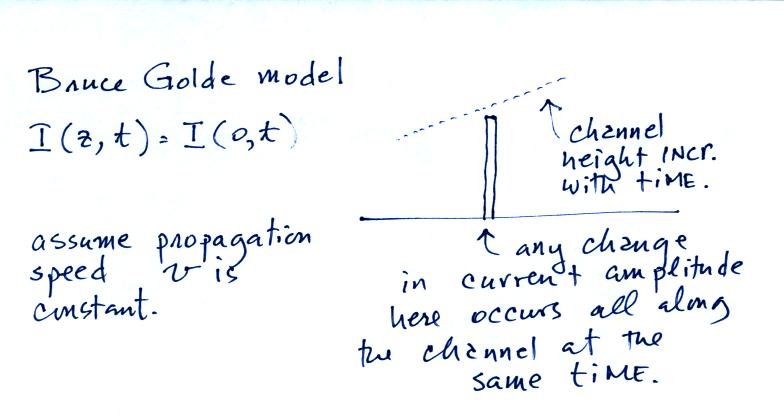 Bruce Golde model
I(z,t) = I(0,t)
channel
height INCR.
with TIME.
assume propagation
speed v is
constant.
any change
in current amplitude
here occurs all along
the channel at the
same TIME.